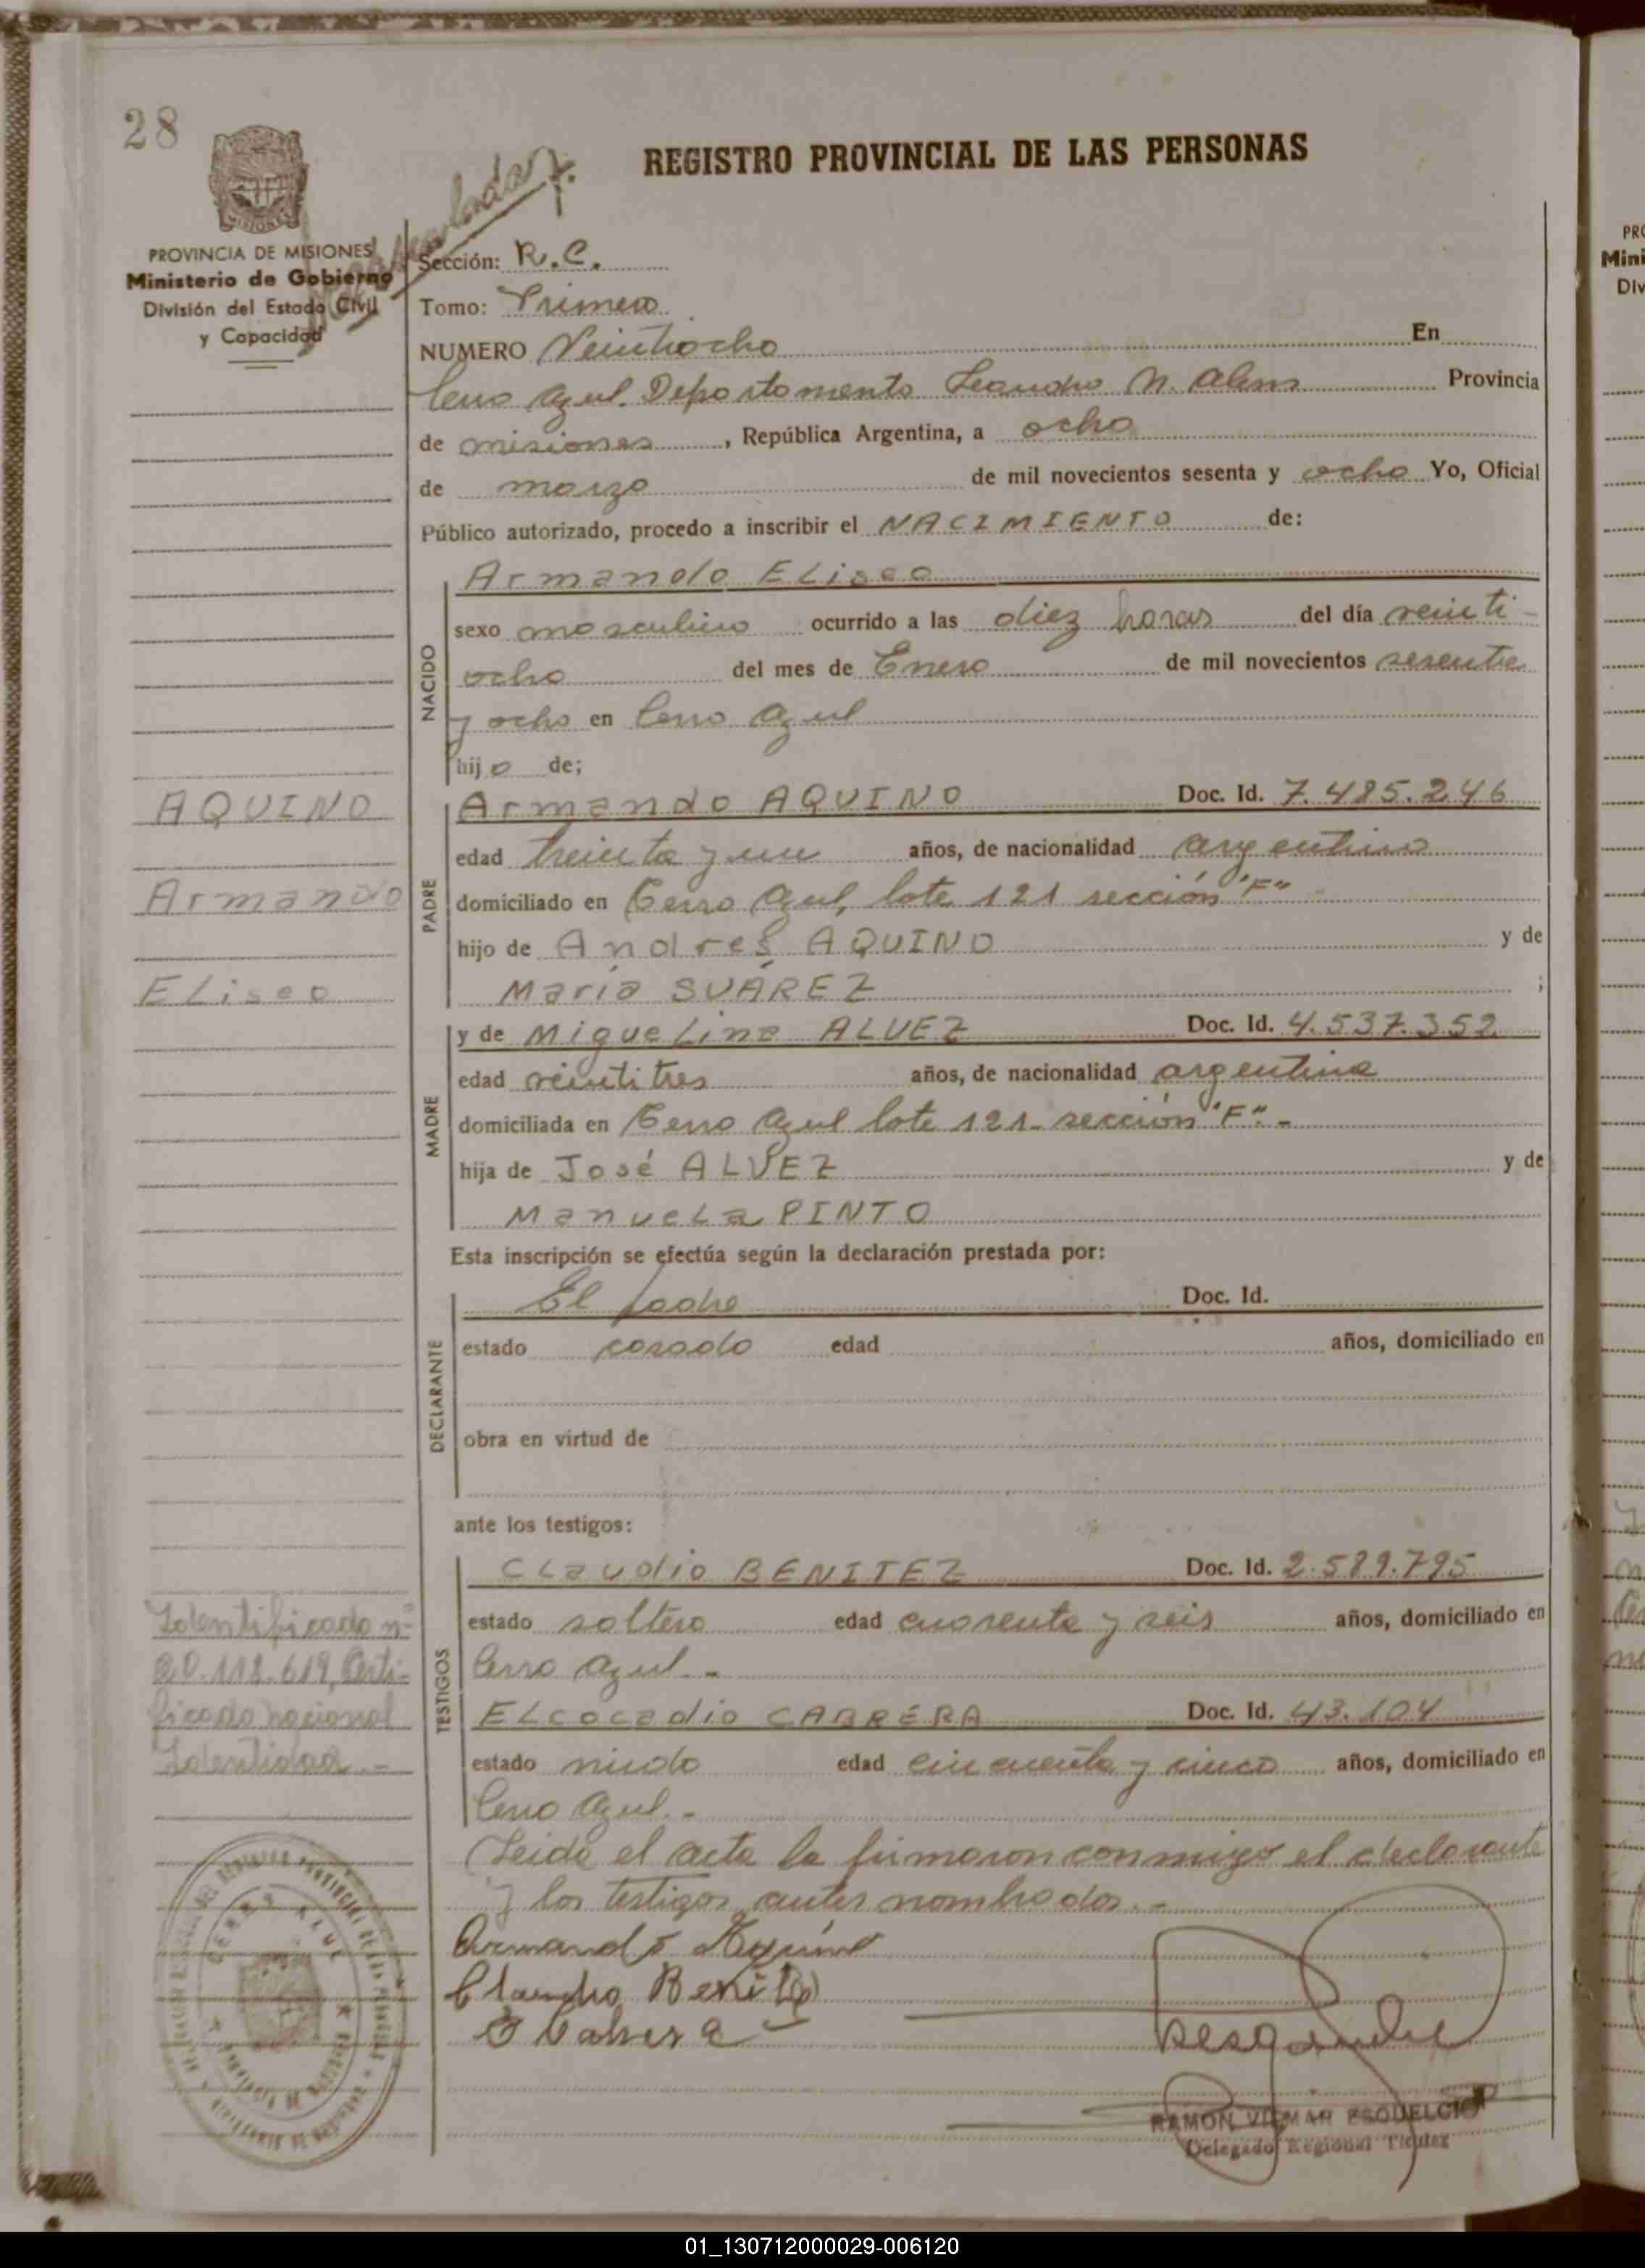 28
REGISTRO PROVINCIAL DE LAS PERSONAS
PROVINCIA DE MISIONES
Ministerio de Gobierno
División del Estado Civil
y Capacidad
Sección: R.C.
Tomo: Primero
NUMERO Veintiocho En
Cerro Azul. Departamento Leandro N. Alem Provincia
de misiones, República Argentina, a ocho
de marzo de mil novecientos sesenta y ocho Yo, Oficial
Público autorizado, procedo a inscribir el NACIMIENTO de:
NACIDO
Armando ELiseo
sexo masculino ocurrido a las diez horas del día veinti-
ocho del mes de Enero de mil novecientos sesenta
y ocho en Cerro Azul
hijo de;
AQUINO
Armando
ELiseo
PADRE
Armando AQUINO Doc. Id. 7.485.246
edad treinta y un años, de nacionalidad argentino
domiciliado en Cerro Azul, lote 121 sección "F" -
hijo de Andrés AQUINO y de
María SUÁREZ ;
MADRE
y de MigueLina ALVEZ Doc. Id. 4.537.352
edad veintitres años, de nacionalidad argentina
domiciliada en Cerro Azul lote 121- sección "F".-
hija de José ALVEZ y de
ManueLa PINTO
Esta inscripción se efectúa según la declaración prestada por:
DECLARANTE
El padre Doc. Id.
estado casado edad años, domiciliado en
obra en virtud de
ante los testigos:
TESTIGOS
CLaudio BENITEZ Doc. Id. 2.589.795
estado soltero edad cuarenta y seis años, domiciliado en
Cerro Azul.-
ELcocadio CABRERA Doc. Id. 43.104
estado viudo edad cincuenta y cinco años, domiciliado en
Cerro Azul.-
Identificado nº
20.118.619, Certi-
ficado nacional
Identidad.-
Leida el acta la firmaron conmigo el declarante
y los testigos antes nombrados.-
Armando Aquino
Claudio Benitez
RAMON VILMAR ESQUELCIO
Delegado Regional Titular
CERRO AZUL
PRO
Mini
Div
01_130712000029-006120